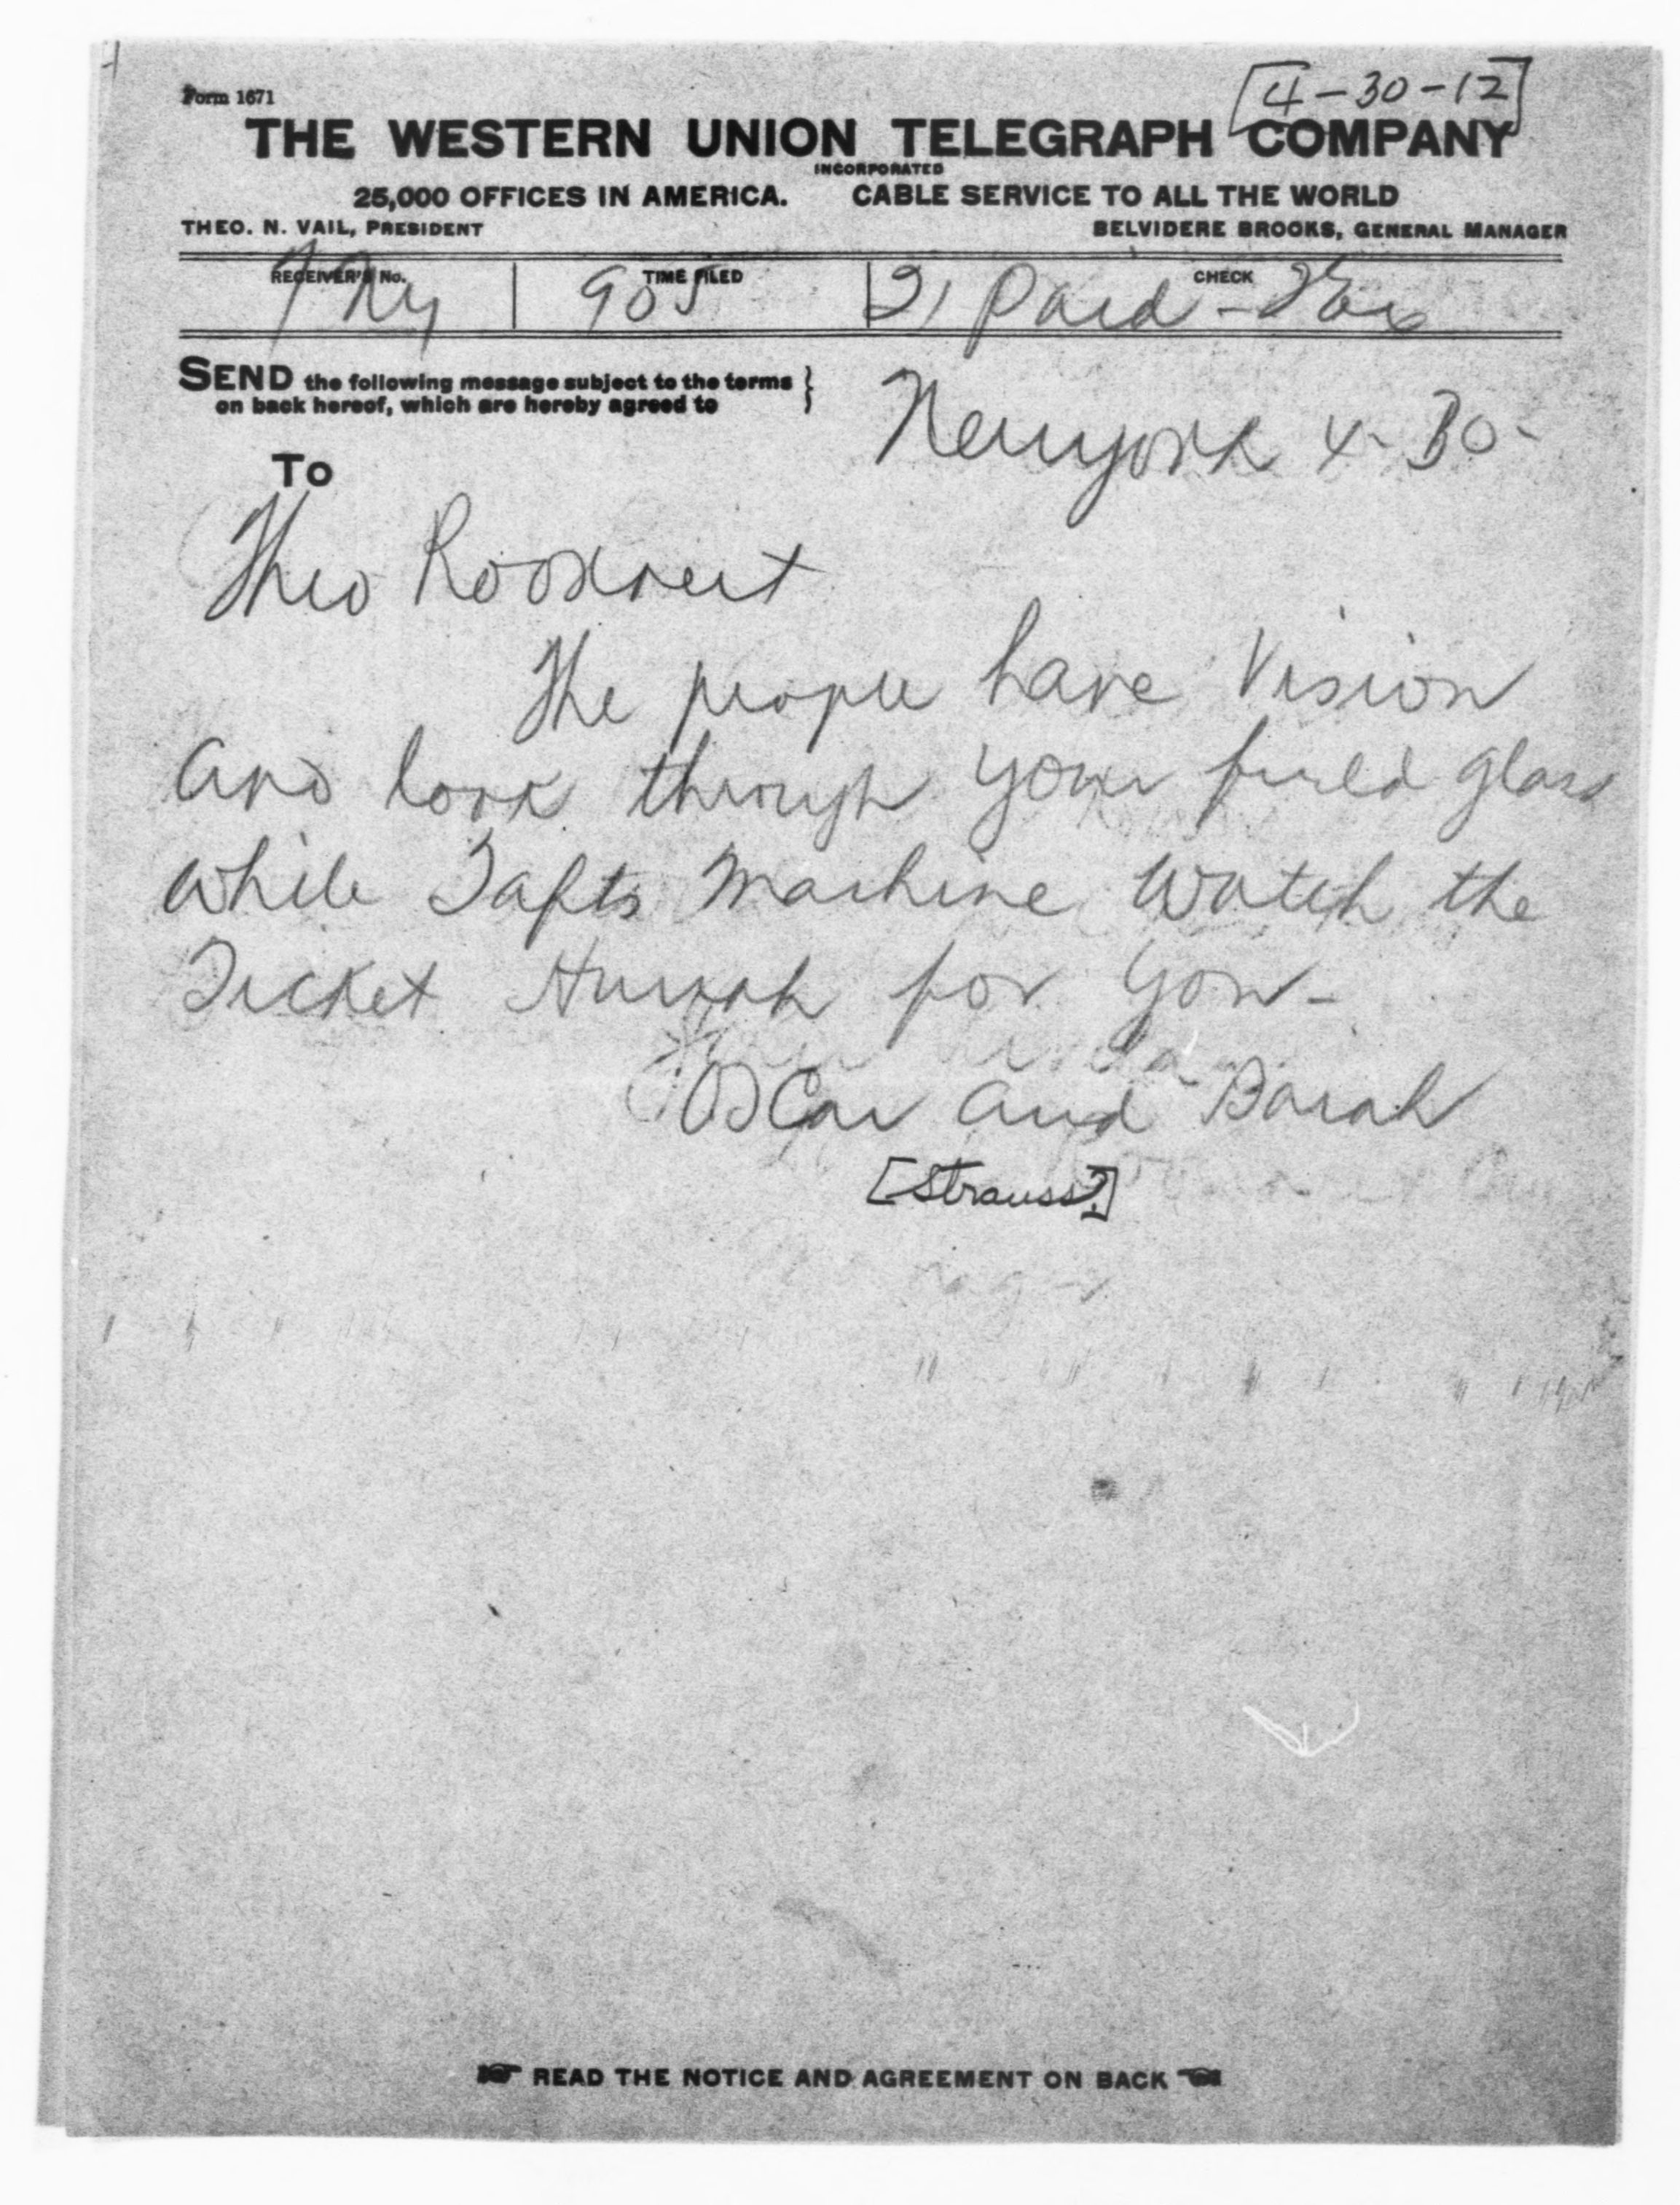 [4-30-12]
Form 1671
THE WESTERN UNION TELEGRAPH COMPANY
INCORPORATED
25,000 OFFICES IN AMERICA. CABLE SERVICE TO ALL THE WORLD
THEO. N. VAIL, PRESIDENT BELVIDERE BROOKS, GENERAL MANAGER
RECEIVER'S No. TIME FILED CHECK
Ny 905 21 Paid -
SEND the following message subject to the terms
on back hereof, which are hereby agreed to
Newyork 4-30-
To
Theo Roosevelt
The people have Vision
and look through your field glass
while Tafts machine watch the
Ticket Hurrah for you-
Oscar and Barah
[Strauss?]
READ THE NOTICE AND AGREEMENT ON BACK